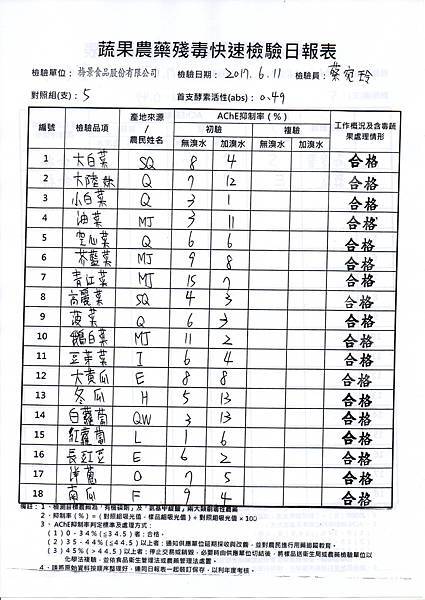 蔬果農藥殘毒快速檢驗日報表
檢驗單位： 裿景食品股份有限公司 檢驗日期： 2017.6.11 檢驗員： 蔡宛玲
對照組(支)： 5 首支酵素活性(abs)： 0.49
編號 檢驗品項 產地來源/農民姓名 AChE抑制率(%) 工作概況及含毒蔬果處理情形
初驗 複驗
無溴水 加溴水 無溴水 加溴水
1 大白菜 SQ 8 4 合格
2 大陸妹 Q 7 12 合格
3 小白菜 Q 3 1 合格
4 油菜 MJ 3 11 合格
5 空心菜 Q 6 6 合格
6 芥藍菜 MJ 9 8 合格
7 青江菜 MJ 15 7 合格
8 高麗菜 SQ 4 3 合格
9 菠菜 Q 6 3 合格
10 鵝白菜 MJ 11 2 合格
11 豆芽菜 I 6 4 合格
12 大黃瓜 E 8 8 合格
13 冬瓜 H 5 13 合格
14 白蘿蔔 QW 3 13 合格
15 紅蘿蔔 L 1 6 合格
16 長豇豆 E 6 2 合格
17 洋蔥 O 7 5 合格
18 南瓜 F 9 4 合格
備註：1、檢測目標農藥為「有機磷劑」及「氨基甲酸鹽」兩大類劇毒性農藥
2、抑制率(%)=(對照組吸光值-樣品組吸光值)÷對照組吸光值×100
3、AChE抑制率判定標準及處理方式：
(1) 0-34%(≦34.5)者：合格。
(2) 35-44%(≦44.5)以上者：通知供應單位延期採收與改善，並對農民進行用藥追蹤教育。
(3) 45%(>44.5)以上者：停止交易或銷毀，必要時由供應單位切結後，將樣品送衛生局或農藥檢驗單位以
化學法複驗，並依食品衛生管理法或農藥管理法處置。
4、請將原始資料按順序整理好，連同日報表一起裝訂保存，以利年度考核。